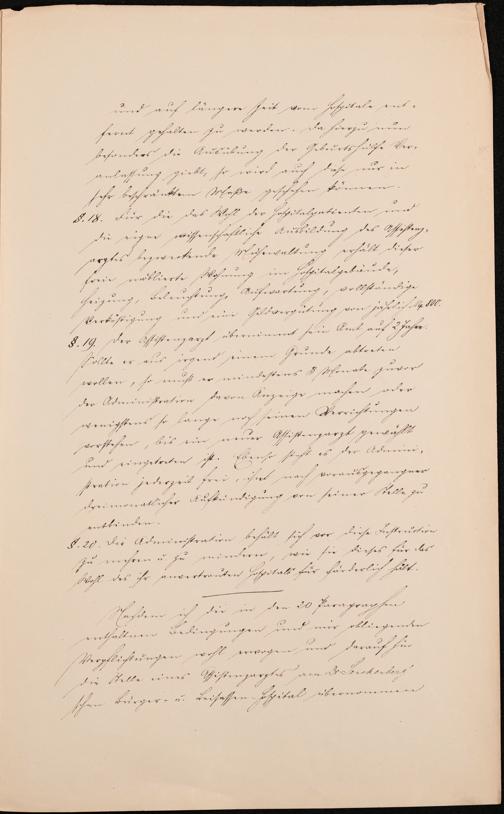 und auf längere Zeit vom Hospitale ent-
fernt gehalten zu werden. Da hierzu nun
besonders die Ausübung der Geburtshülfe Ver-
anlassung giebt, so wird auch diese nur in
sehr beschränktem Maße geschehen können.
§. 18. Für die das Wohl der Hospitalpatienten und
die eigene wissenschaftliche Ausbildung des Assistenz-
arztes bezweckende Mühewaltung erhält dieser
freie möblierte Wohnung im Hospitalgebäude,
Heizung, Beleuchtung, Aufwartung, vollständige
Verköstigung und eine Geldvergütung von jährlich M. 800.
§. 19. Der Assistenzarzt übernimmt sein Amt auf 2 Jahre.
Sollte er aus irgend einem Grunde abtreten
wollen, so muß er mindestens 3 Monate zuvor
der Administration davon Anzeige machen oder
wenigstens so lange noch seinen Verrichtungen
vorstehen, bis ein neuer Assistenzarzt gewählt
und eingetreten ist. Ebenso steht es der Admini-
stration jederzeit frei, ihn nach vorausgegangener
dreimonatlicher Aufkündigung von seiner Stelle zu
entbinden.
§. 20. Die Administration behält sich vor diese Instruction
zu mehren u. zu mindern, wie sie dieses für das
Wohl des ihr anvertrauten Hospitals für förderlich hält.
Nachdem ich die in den 20 Paragraphen
enthaltenen Bedingungen und mir obliegenden
Verpflichtungen wohl erwogen und darauf hin
die Stelle eines Assistenzarztes am Dr. Senckenberg'
schen Bürger- u. Beisassen-Hospital übernommen